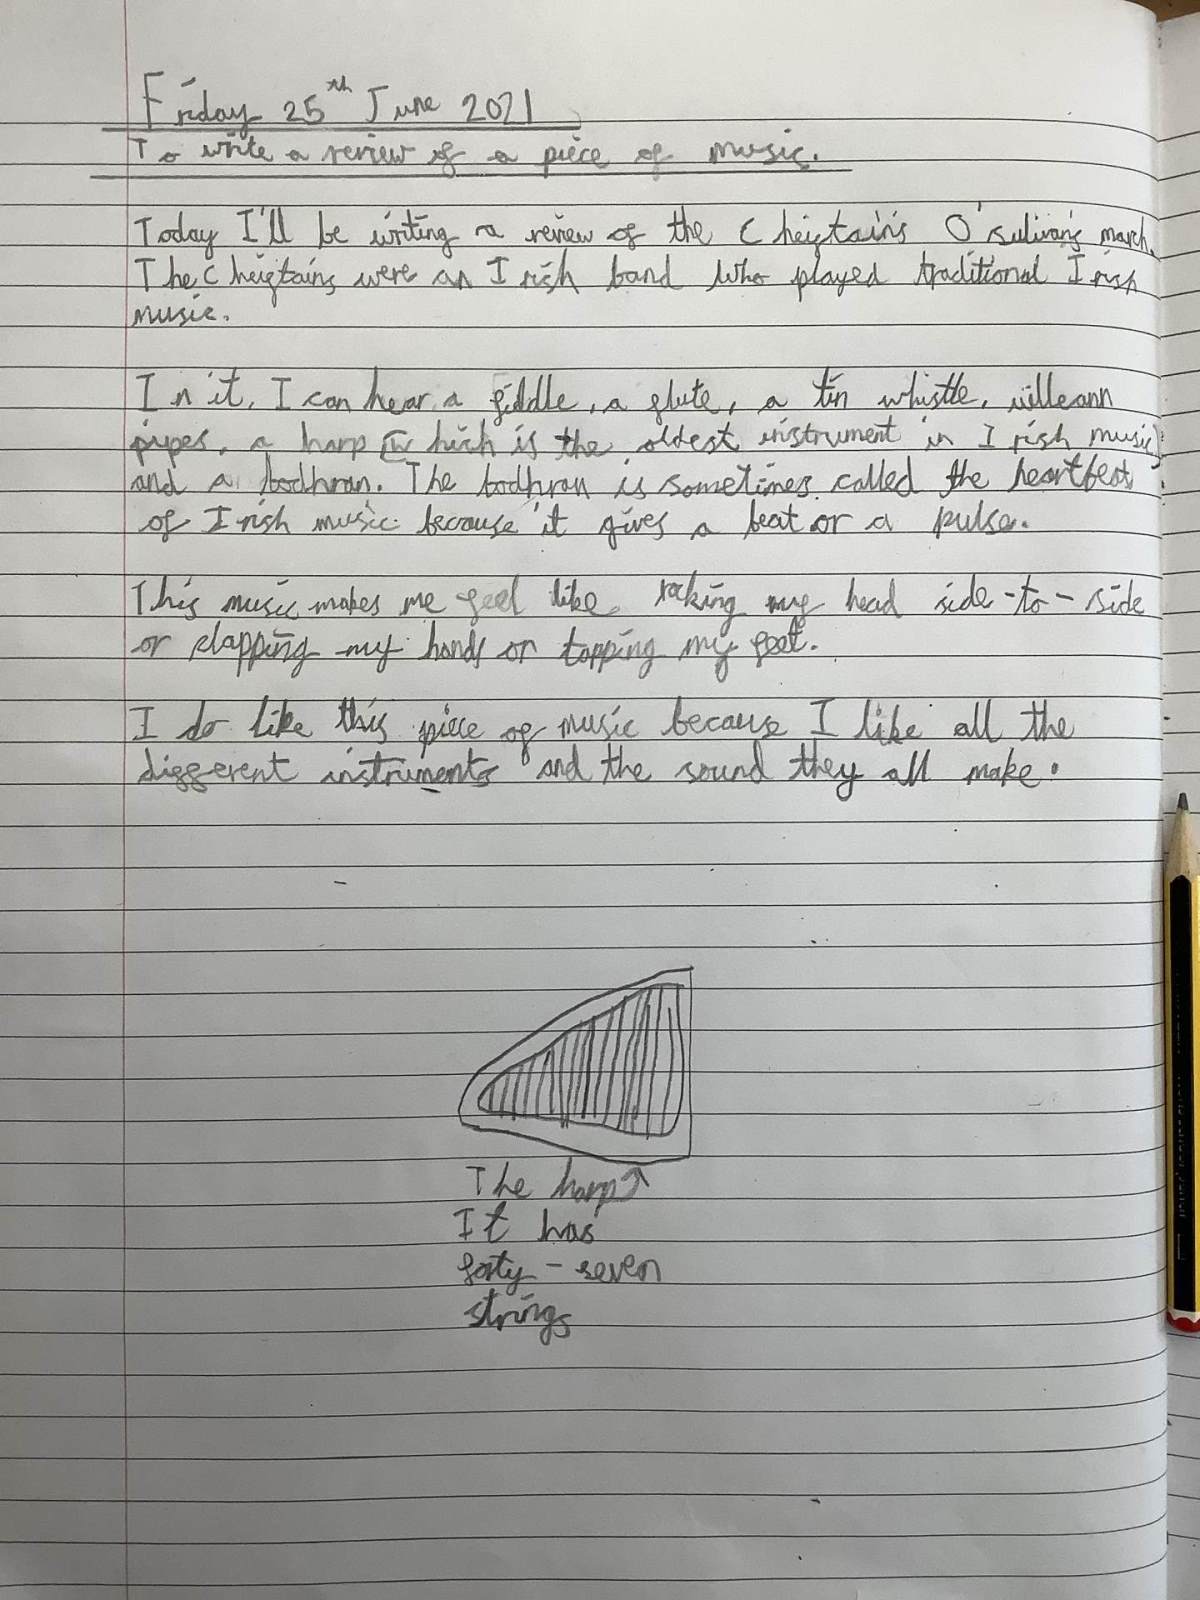 Friday 25th June 2021
To write a review of a piece of music.
Today I'll be writing a review of the Chieftain's O'sulivan's march.
The Chieftains were an Irish band who played traditional Irish
music.
In it, I can hear a fiddle, a flute, a tin whistle, uilleann
pipes, a harp [which is the oldest instrument in Irish music]
and a bodhran. The bodhran is sometimes called the heartbeat
of Irish music because it gives a beat or a pulse.
This music makes me feel like rocking my head side-to-side
or clapping my hands or tapping my feet.
I do like this piece of music because I like all the
different instruments and the sound they all make.
The harp
It has
forty-seven
strings